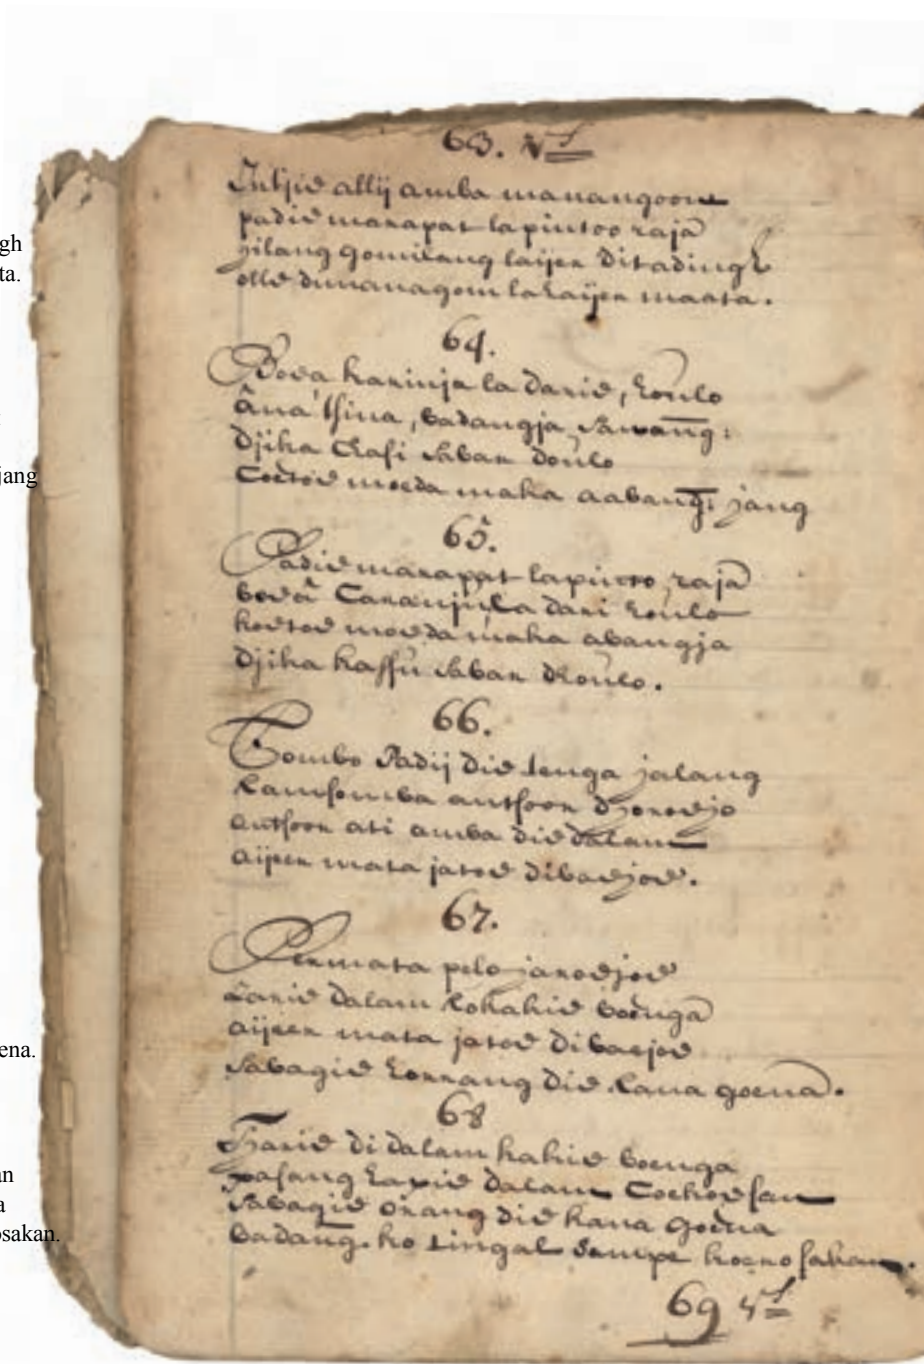 gh
ta.
jang
ena.
an
a
osakan.
63. Vs
Intjie allij amba manangoom
padie marapat la pintoo raja
gilang gomilang laijer ditading
olle dimanagom la raijer maata.
64.
Boea karinja la darie, houlo
âna tsina, badangja, sawang:
djika Chasi sabar doulo
Coetoe moeda maka aabang: jang
65.
Padie marapat la pintoo raja
boeâ Caranjula dari houlo
koetoe moeda maka abangja
djika kassu sabar doulo.
66.
Tombo Padij die tenga jalang
antsoor
antsoor ati amba die dalam
aijer mata jatoe dibaejoe.
67.
Permata pelo janoejoe
Larie dalam kokakie boenga
aijeer mata jatoe dibaejoe
sabagie horrang die kana goena.
68
Harie di dalam kakie boenga
pasang dalam Coekoesan
sabagie orang die kana goena
badang. ko tingal sampe koerosakan.
69 Vs